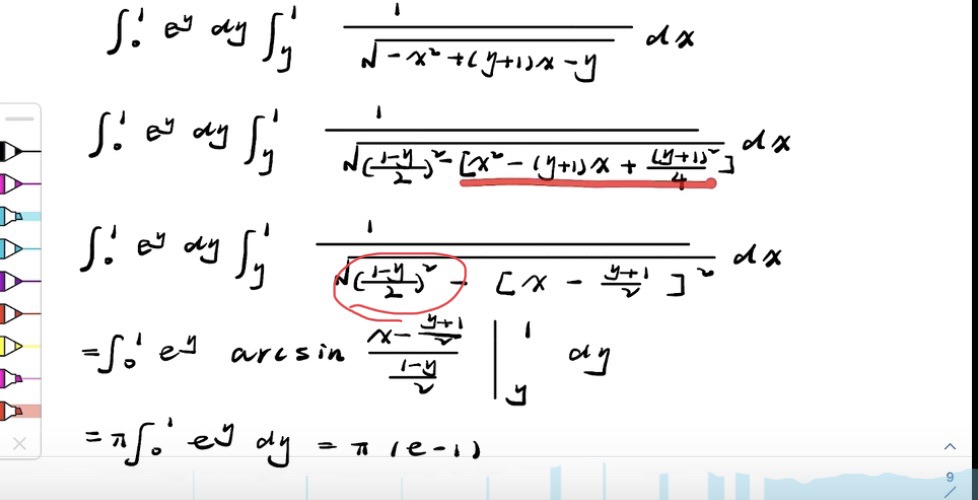 ∫₀¹ e^y dy ∫_y^1 1/√(-x²+(y+1)x-y) dx
∫₀¹ e^y dy ∫_y^1 1/√(((1-y)/2)²-[x²-(y+1)x+(y+1)²/4]) dx
∫₀¹ e^y dy ∫_y^1 1/√(((1-y)/2)²-[x-(y+1)/2]²) dx
=∫₀¹ e^y arcsin (x-(y+1)/2)/((1-y)/2) |_y^1 dy
=π∫₀¹ e^y dy = π(e-1)
9
/